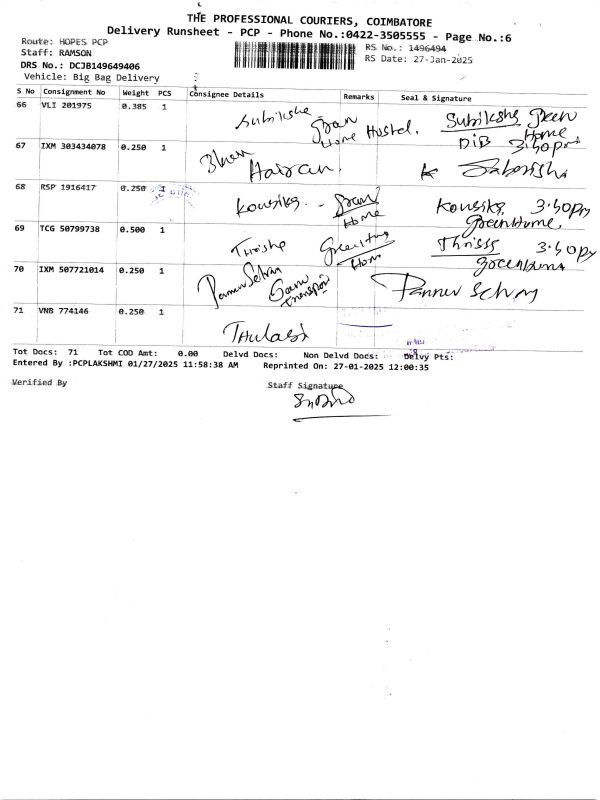 THE PROFESSIONAL COURIERS, COIMBATORE
Delivery Runsheet - PCP - Phone No.:0422-3505555 - Page No.:6
Route: HOPES PCP
RS No.: 1496494
Staff: RAMSON
RS Date: 27-Jan-2025
DRS No.: DCJB149649406
Vehicle: Big Bag Delivery
S No Consignment No Weight PCS Consignee Details Remarks Seal & Signature
66 VLI 201975 0.385 1 Subiksha Home Hostel. Subiksha Green Home
3:50pm
67 IXM 303434078 0.250 1
68 RSP 1916417 0.250 1 Kousika - Home Kousika 3.50pm
Greenhome
69 TCG 50799738 0.500 1 Home 3.50py
70 IXM 507721014 0.250 1 Panner Selvan Panner Selvan
71 VNB 774146 0.250 1 THulasi
Tot Docs: 71 Tot COD Amt: 0.00 Delvd Docs: Non Delvd Docs: Delvy Pts:
Entered By :PCPLAKSHMI 01/27/2025 11:58:38 AM Reprinted On: 27-01-2025 12:00:35
Verified By Staff Signature